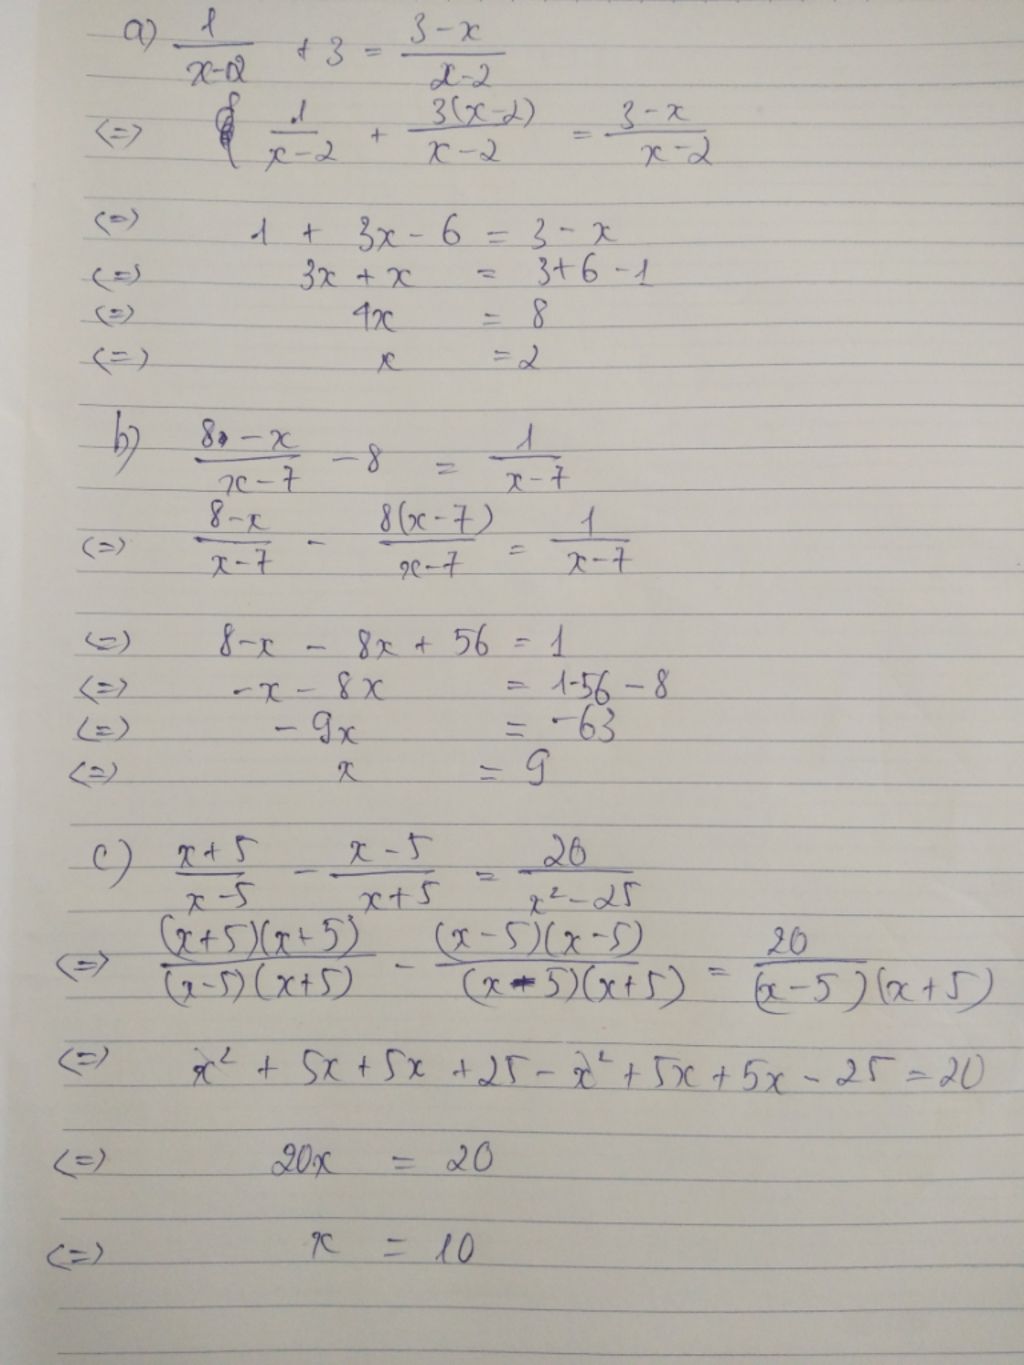 a) 1/(x-2) + 3 = (3-x)/(x-2)
<=> 1/(x-2) + 3(x-2)/(x-2) = (3-x)/(x-2)
<=> 1 + 3x - 6 = 3 - x
<=> 3x + x = 3+6-1
<=> 4x = 8
<=> x = 2
b) (8-x)/(x-7) - 8 = 1/(x-7)
<=> (8-x)/(x-7) - 8(x-7)/(x-7) = 1/(x-7)
<=> 8-x - 8x + 56 = 1
<=> -x - 8x = 1-56-8
<=> -9x = -63
<=> x = 9
c) (x+5)/(x-5) - (x-5)/(x+5) = 20/(x²-25)
<=> (x+5)(x+5)/(x-5)(x+5) - (x-5)(x-5)/(x-5)(x+5) = 20/(x-5)(x+5)
<=> x² + 5x + 5x + 25 - x² + 5x + 5x - 25 = 20
<=> 20x = 20
<=> x = 10